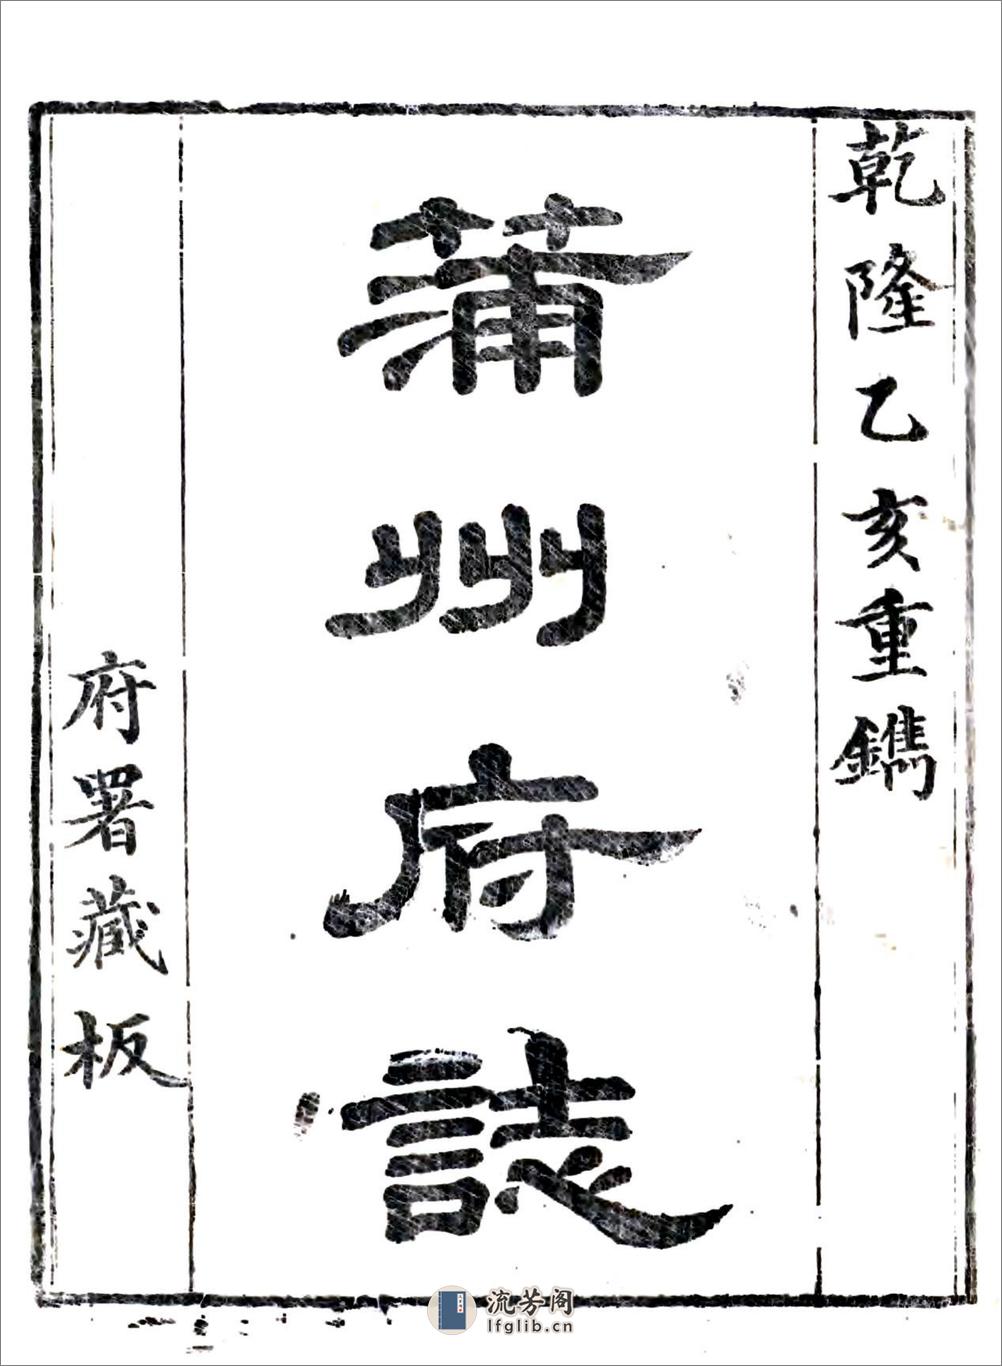 乾隆乙亥重鐫
蒲州府誌
府署藏板
流芳阁
lfglib.cn